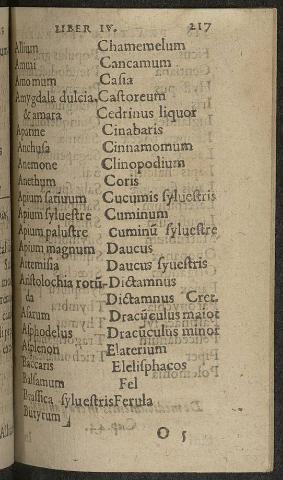 LIBER IV. 217
Allium
Ammi
Amomum
Amygdala dulcia,
& amara
Aparine
Anchusa
Anemone
Anethum
Apium satiuum
Apium syluestre
Apium palustre
Apium magnum
Artemisia
Aristolochia rotū-
da
Asarum
Asphodelus
Asplenon
Baccaris
Balsamum
Brassica syluestris
Butyrum
Chamemelum
Cancamum
Casia
Castoreum
Cedrinus liquor
Cinabaris
Cinnamomum
Clinopodium
Coris
Cucumis syluestris
Cuminum
cuminū syluestre
Daucus
Daucus syuestris
Dictamnus
Dictamnus Cret.
Dracūculus maior
Dracūculus minor
Elaterium
Elelisphacos
Fel
Ferula
O 5